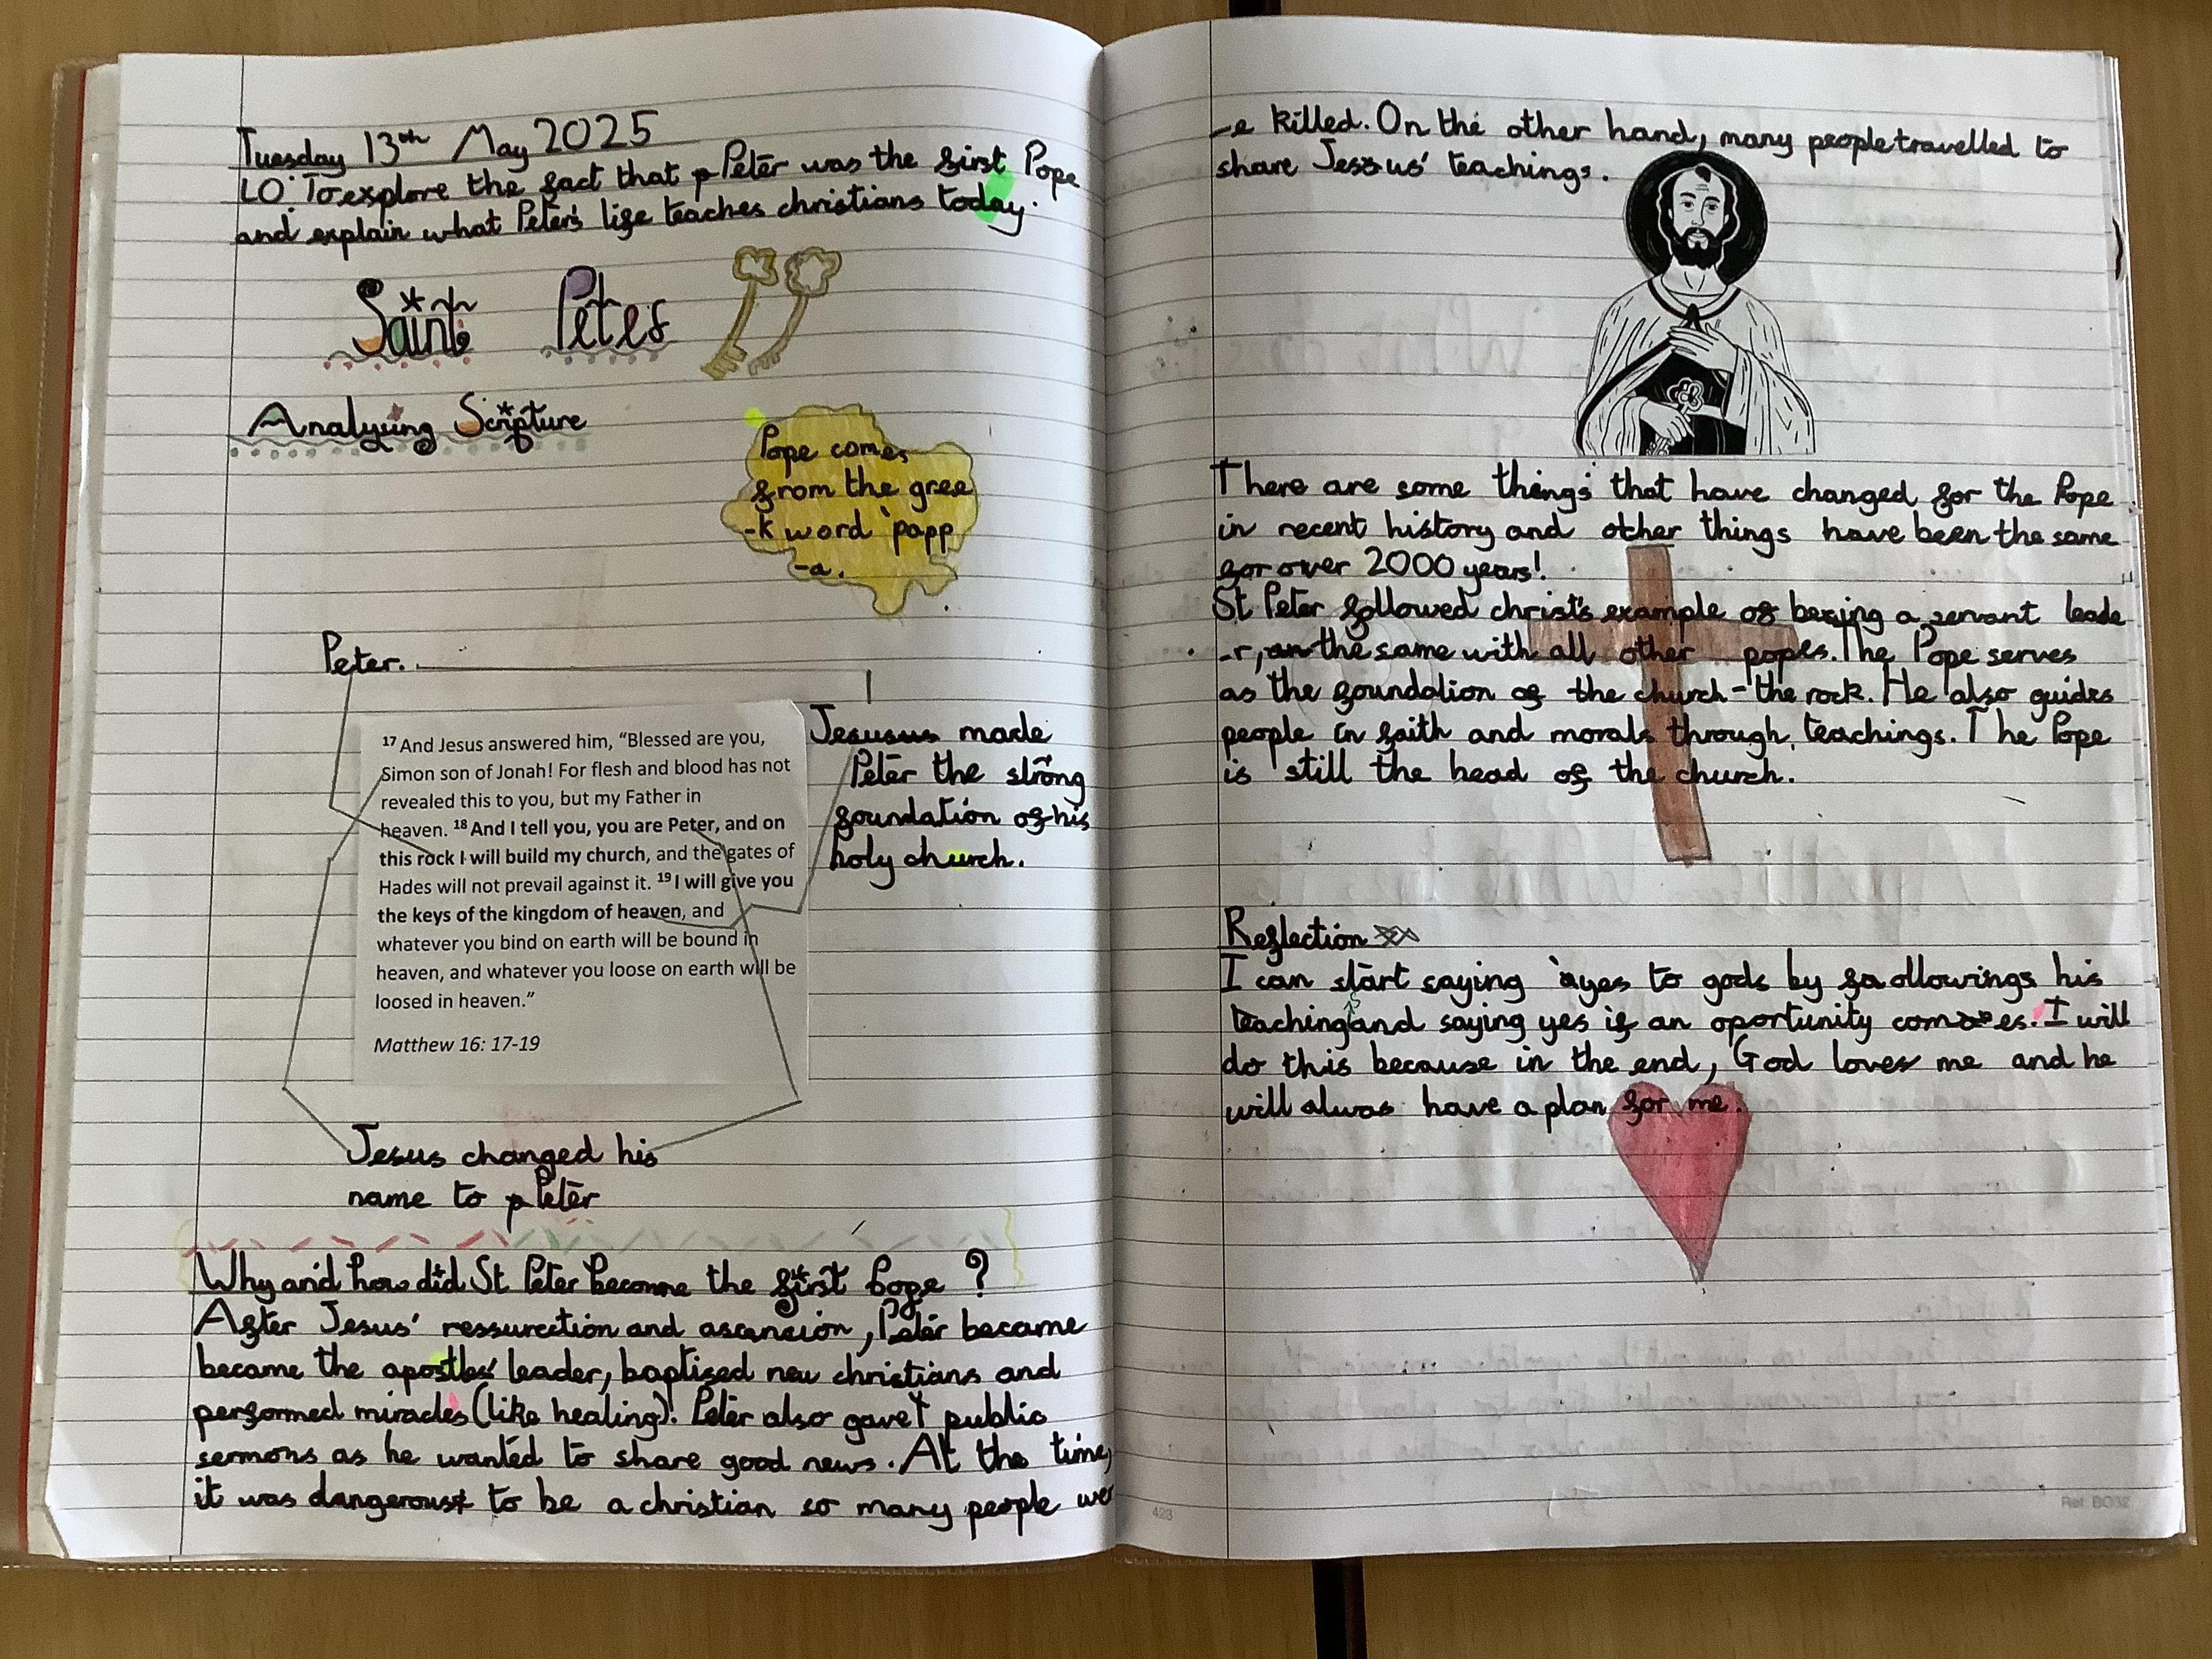 Tuesday 13th May 2025
LO: To explore the fact that p Peter was the first Pope
and explain what Peter's life teaches christians today.
Saint Peter
Analysing Scripture
Pope comes
from the gree
-k word 'papp
-a.
Peter.
17 And Jesus answered him, “Blessed are you,
Simon son of Jonah! For flesh and blood has not
revealed this to you, but my Father in
heaven. 18 And I tell you, you are Peter, and on
this rock I will build my church, and the gates of
Hades will not prevail against it. 19 I will give you
the keys of the kingdom of heaven, and
whatever you bind on earth will be bound in
heaven, and whatever you loose on earth will be
loosed in heaven.”
Matthew 16: 17-19
Jesusus made
Peter the strong
foundation of his
holy church.
Jesus changed his
name to p Peter
Why and how did St Peter become the first Pope?
After Jesus' ressurection and ascencion, Peter became
became the apostles' leader, baptised new christians and
performed miracles (like healing). Peter also gave public
sermons as he wanted to share good news. At the time,
it was dangerous to be a christian so many people wer
-e killed. On the other hand, many people travelled to
share Jesus' teachings.
There are some things that have changed for the Pope
in recent history and other things have been the same
for over 2000 years!
St Peter followed christ's example of being a servant leade
-r, an the same with all other popes. The Pope serves
as the foundation of the church - the rock. He also guides
people in faith and morals through teachings. The Pope
is still the head of the church.
Reflection
I can start saying 'ayes to gods by followings his
teachings and saying yes if an oportunity comes. I will
do this because in the end, God loves me and he
will alwas have a plan for me.
423
Ref: BO32